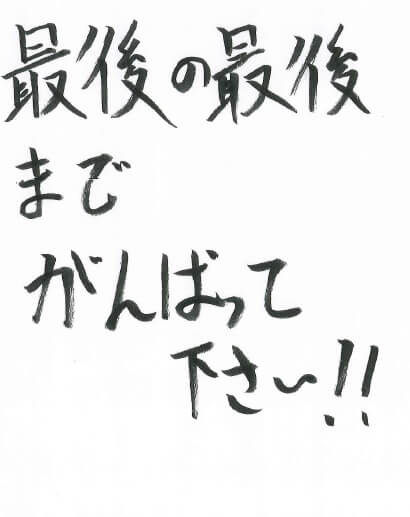 最後の最後
まで
がんばって
下さい!!